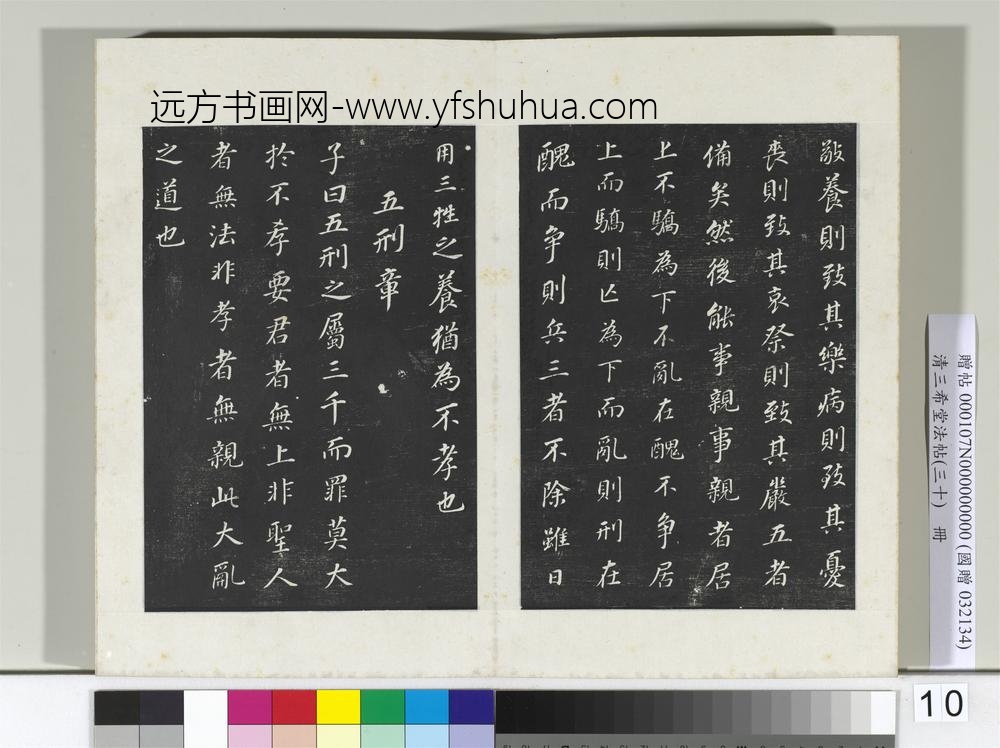 远方书画网-www.yfshuhua.com
敬養則致其樂病則致其憂
喪則致其哀祭則致其嚴五者
備矣然後能事親事親者居
上不驕為下不亂在醜不争居
上而驕則亡為下而亂則刑在
醜而争則兵三者不除雖日
用三牲之養猶為不孝也
五刑章
子曰五刑之屬三千而罪莫大
於不孝要君者無上非聖人
者無法非孝者無親此大亂
之道也
贈帖 000107N000000000 (國贈 032134)
清三希堂法帖(三十) 冊
10